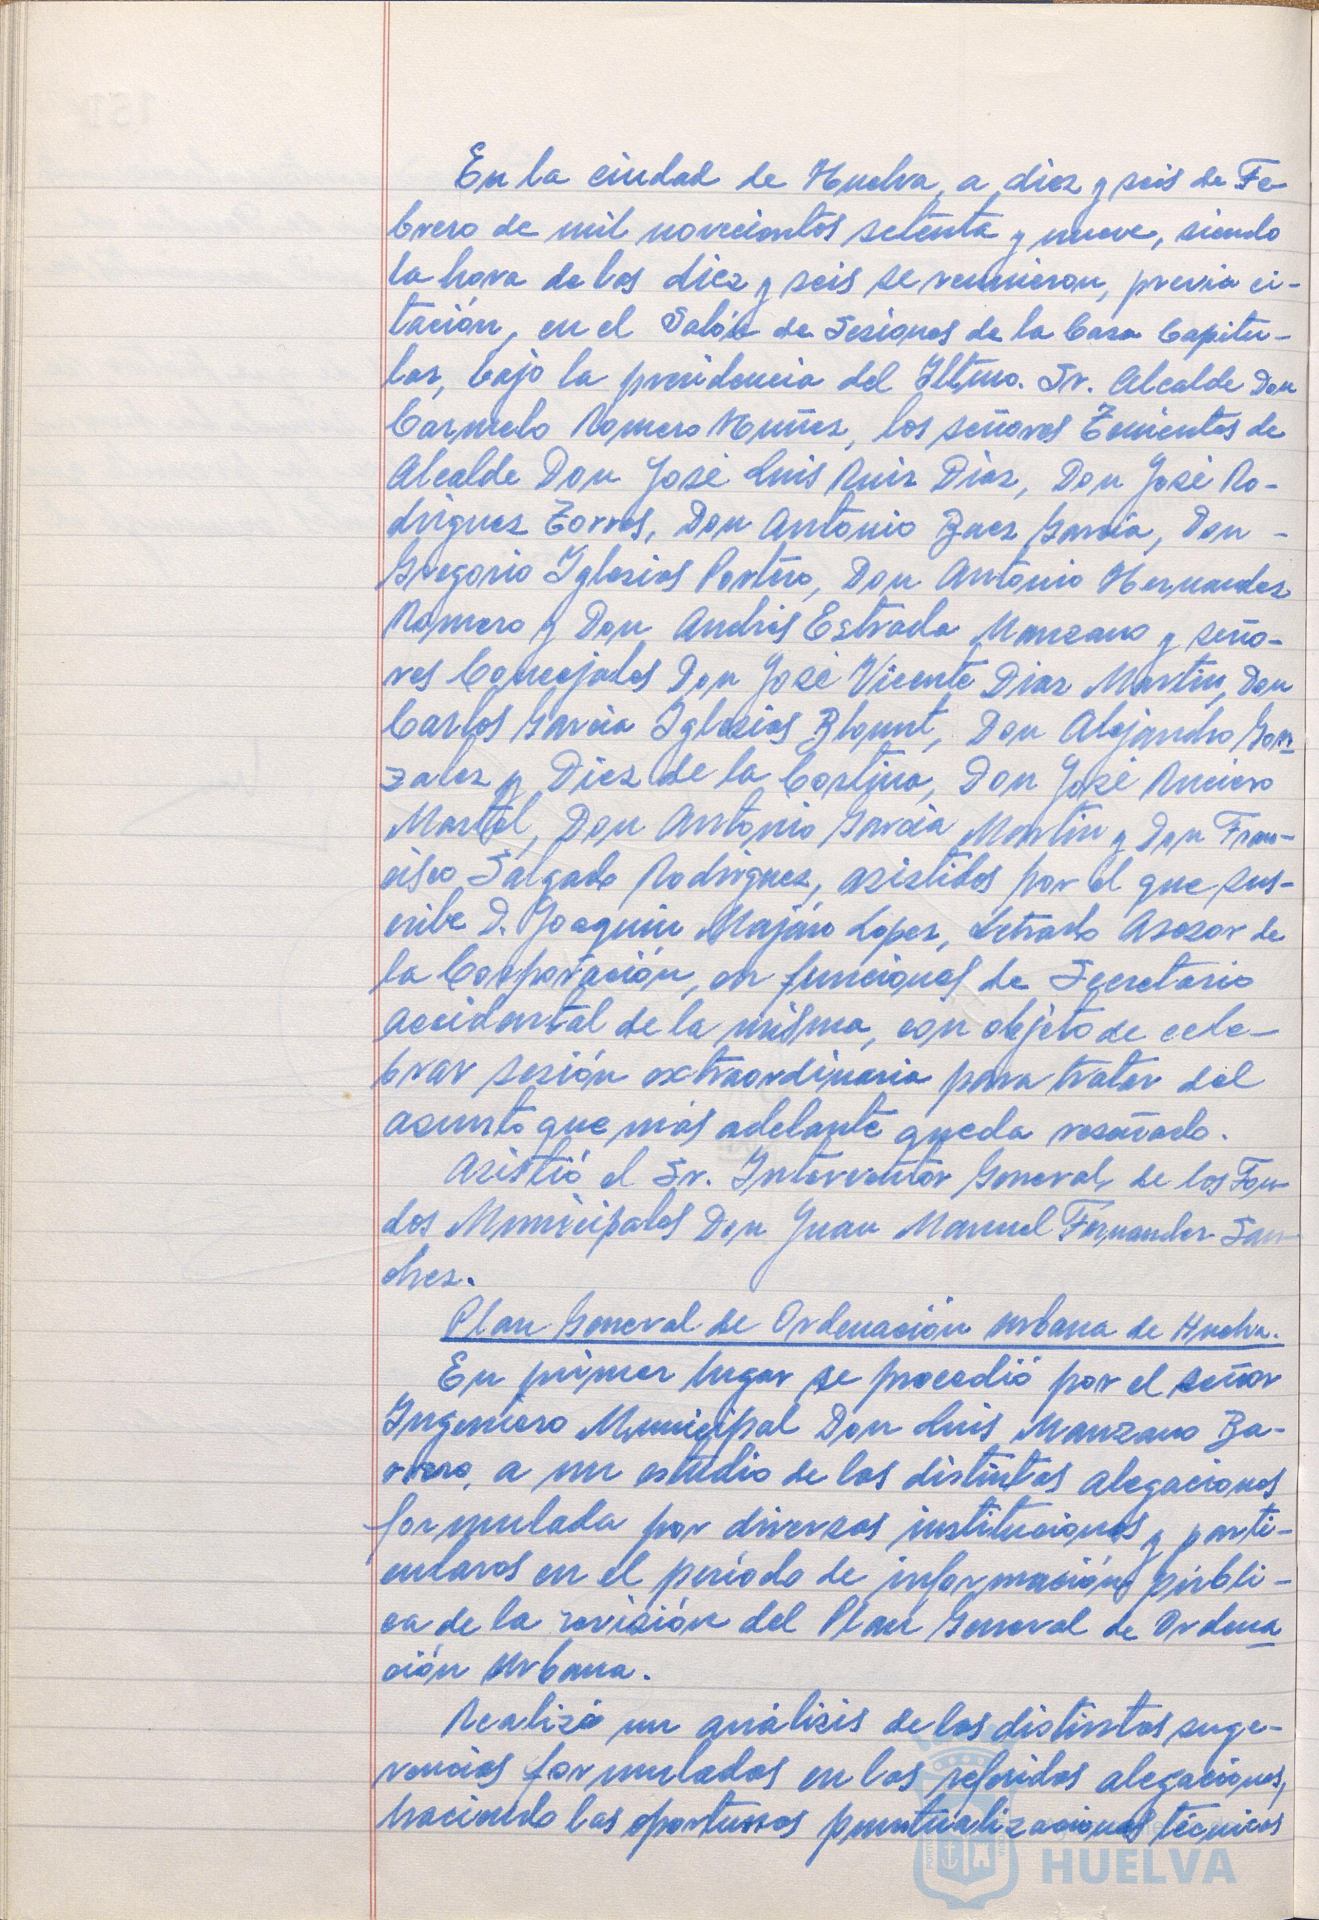 En la ciudad de Huelva, a diez y seis de Fe-
brero de mil novecientos setenta y nueve, siendo
la hora de las diez y seis se reunieron, previa ci-
tación, en el Salón de Sesiones de la Casa Capitu-
lar, bajo la presidencia del Iltmo. Sr. Alcalde Don
Carmelo Romero Muñoz, los señores Tenientes de
Alcalde Don José Luis Ruiz Díaz, Don José Ro-
driguez Torres, Don Antonio Baez García, Don -
Gregorio Iglesias Portero, Don Antonio Hernandez
Romero y Don Andrés Estrada Manzano y seño-
res Concejales Don José Vicente Diaz Martin, Don
Carlos García Iglesias Blount, Don Alejandro Gon-
zalez y Diez de la Cortina, Don José Ruciero
Martel, Don Antonio García Martin y Don Fran-
cisco Salgado Rodriguez, asistidos por el que sus-
cribe D. Joaquín Maján Lopez, Letrado Asesor de
la Corporación, en funciones de Secretario
accidental de la misma, con objeto de cele-
brar sesión extraordinaria para tratar del
asunto que más adelante queda reseñado.
Asistió el Sr. Interventor General de los Fon-
dos Municipales Don Juan Manuel Fernandez San-
chez.
Plan General de Ordenación urbana de Huelva.
En primer lugar se procedió por el señor
Ingeniero Municipal Don Luis Manzano Ba-
rrero, a un estudio de las distintas alegaciones
formulada por diversas instituciones y parti-
culares en el período de información públi-
ca de la revisión del Plan General de Ordena
ción Urbana.
Realizó un análisis de las distintas suge-
rencias formuladas en las referidas alegaciones,
haciendo las oportunas puntualizaciones técnicas
HUELVA